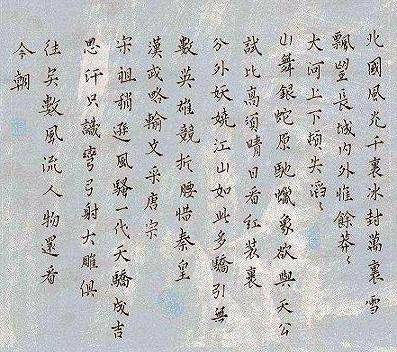 北國風光千裏冰封萬裏雪
飄望長城內外惟餘莽〻
大河上下頓失滔〻
山舞銀蛇原馳蠟象欲與天公
試比高須晴日看紅裝裹
分外妖嬈江山如此多驕引無
數英雄競折腰惜秦皇
漢武略輸文采唐宗
宋祖稍遜風騷一代天驕成吉
思汗只識彎弓射大雕俱
往矣數風流人物還看
今朝